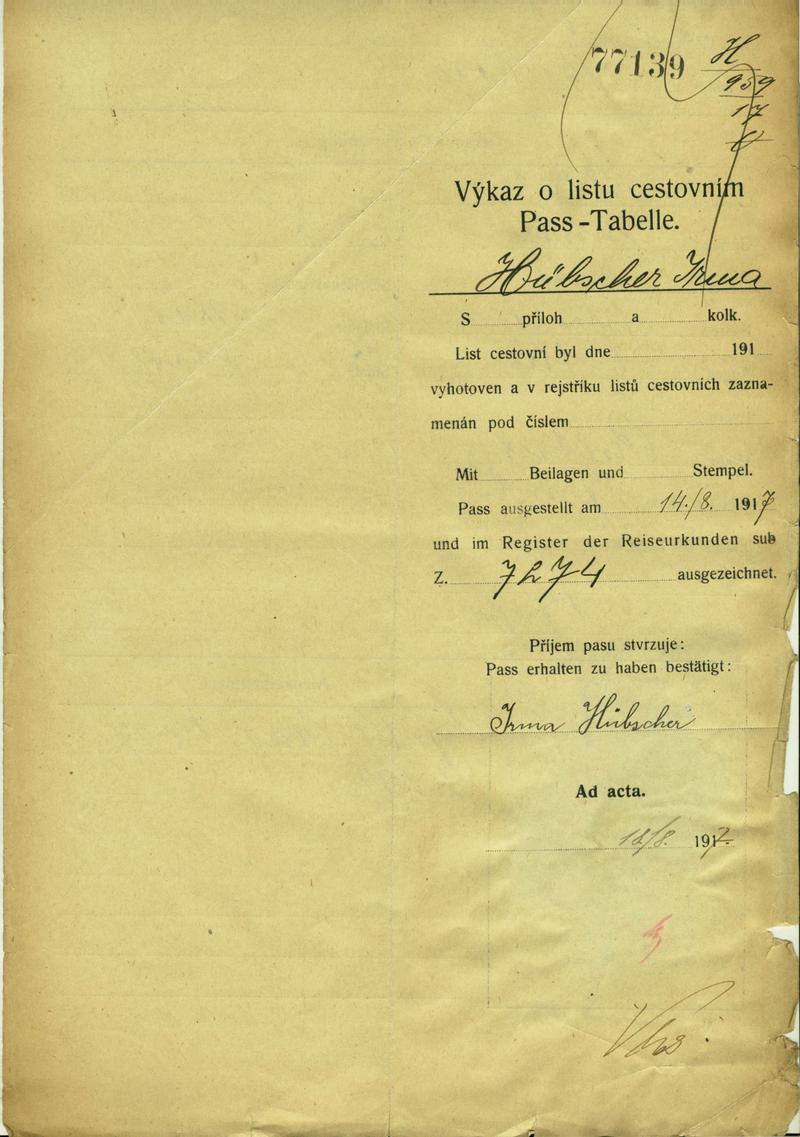 77139
H
959
17
Výkaz o listu cestovním
Pass-Tabelle.
Hübscher Irma
S příloh a kolk.
List cestovní byl dne 191
vyhotoven a v rejstříku listů cestovních zazna-
menán pod číslem
Mit Beilagen und Stempel.
Pass ausgestellt am 14./8. 1917
und im Register der Reiseurkunden sub
Z. 7274 ausgezeichnet.
Příjem pasu stvrzuje:
Pass erhalten zu haben bestätigt:
Irma Hübscher
Ad acta.
18/8. 1917.